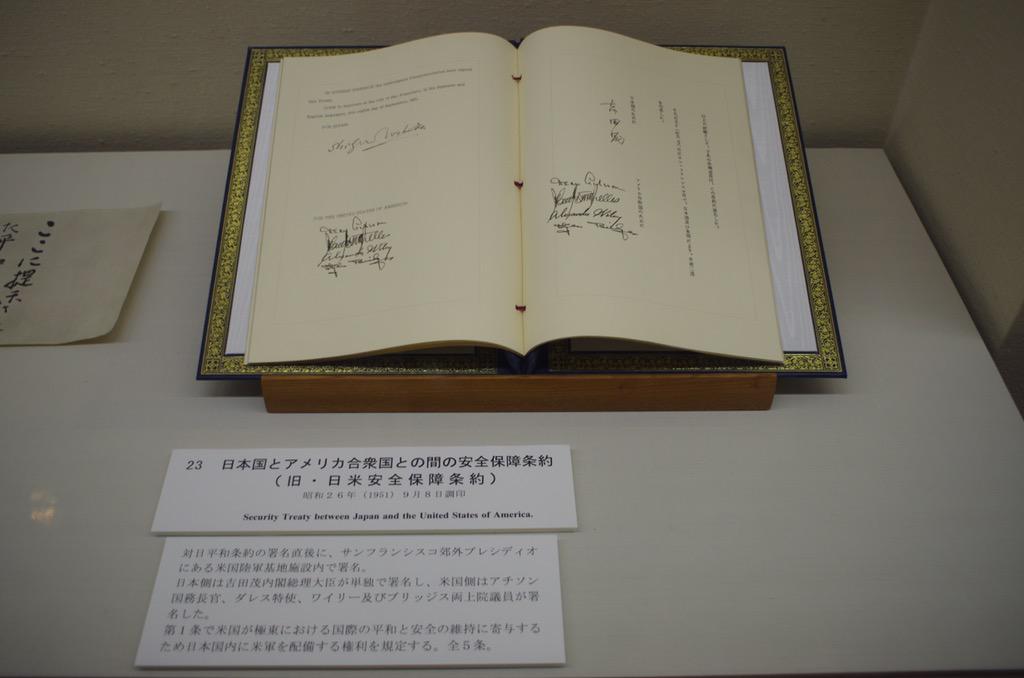 IN WITNESS WHEREOF the undersigned Plenipotentiaries have signed
this Treaty.
DONE in duplicate at the city of San Francisco, in the Japanese and
English languages, this eighth day of September, 1951.
FOR JAPAN:
Shigeru Yoshida
FOR THE UNITED STATES OF AMERICA:
日本国のために
吉田茂
アメリカ合衆国のために
ここに提示
23 日本国とアメリカ合衆国との間の安全保障条約
(旧・日米安全保障条約)
昭和26年(1951)9月8日調印
Security Treaty between Japan and the United States of America.
対日平和条約の署名直後に、サンフランシスコ郊外プレシディオ
にある米国陸軍基地施設内で署名。
日本側は吉田茂内閣総理大臣が単独で署名し、米国側はアチソン
国務長官、ダレス特使、ワイリー及びブリッジス両上院議員が署
名した。
第1条で米国が極東における国際の平和と安全の維持に寄与する
ため日本国内に米軍を配備する権利を規定する。全5条。